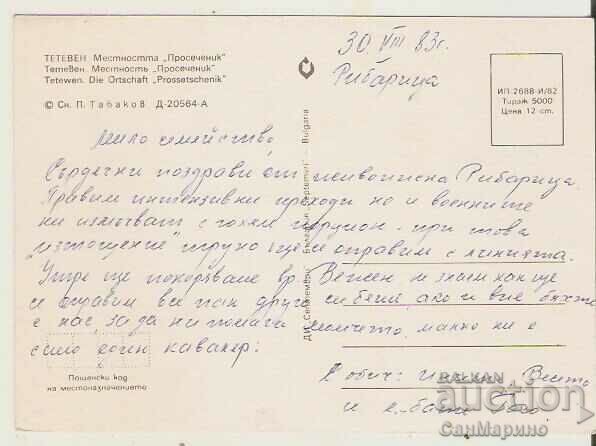 ТЕТЕВЕН Местността „Просеченик"
Тетевен. Местность „Просеченик"
Tetewen. Die Ortschaft „Prossetschenik"
© Сн. П. Табаков Д-20564-А
30 VIII 83г.
Рибарица
ИП 2688-И/82
Тираж 5000
Цена 12 ст.
Мило семейство,
Сърдечни поздрави от живописна Рибарица.
Правим интензивни преходи но и военните
ни изпълват с голям порцион. при това
„изтощение" трудно ще се оправим с линията.
Утре ще покоряваме вр. Вежен и знам как ще
се оправим все пак други си бяхте ако и вие бяхте
с нас, за да ни помага момчето, малко ни е
само един кавалер.
с обич:
и
Bulgaria
Пощенски код
на местоназначението
BALKAN
auction
СанМарино